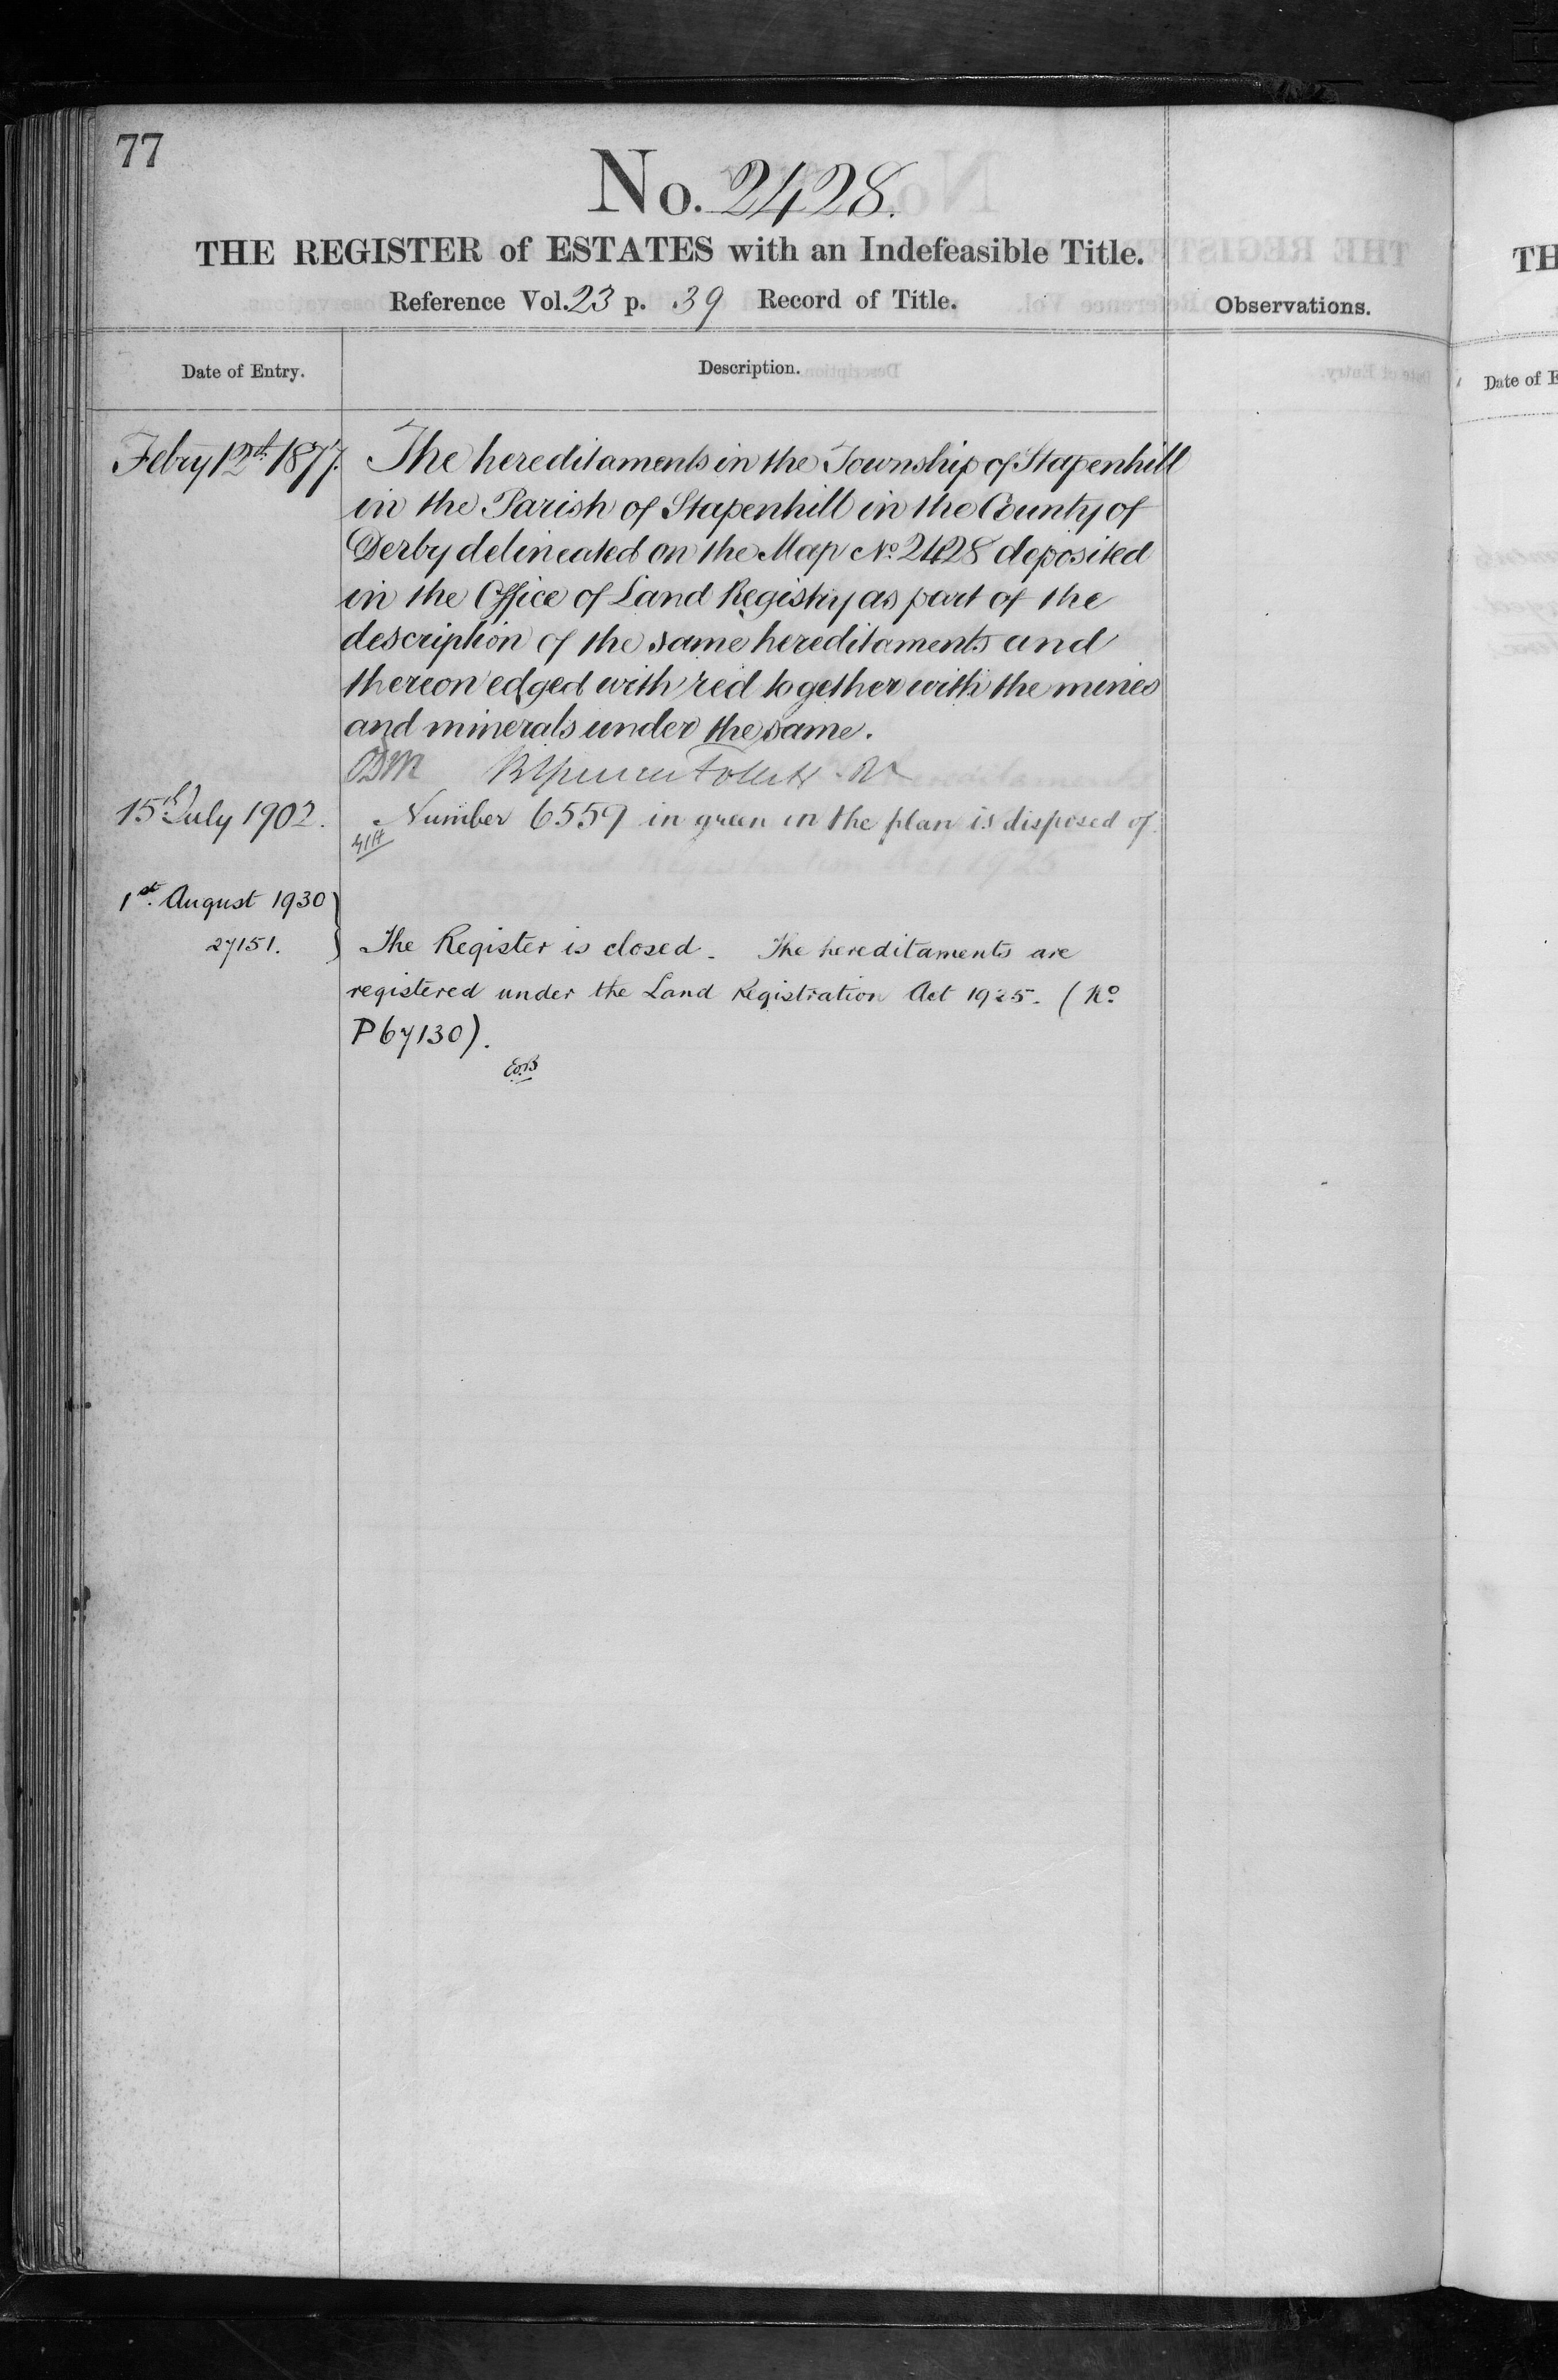 77
No. 2428.
THE REGISTER of ESTATES with an Indefeasible Title.
Reference Vol. 23 p. 39 Record of Title.
Observations.
Date of Entry.
Description.
Febry 12th 1877.
The hereditaments in the Township of Stapenhill
in the Parish of Stapenhill in the County of
Derby delineated on the Map No. 2428 deposited
in the Office of Land Registry as part of the
description of the same hereditaments and
thereon edged with red together with the mines
and minerals under the same.
15th July 1902.
Number 6559 in green on the plan is disposed of.
1st. August 1930
27151.
The Register is closed. The hereditaments are
registered under the Land Registration Act 1925. (No
P67130).
TH
Date of E